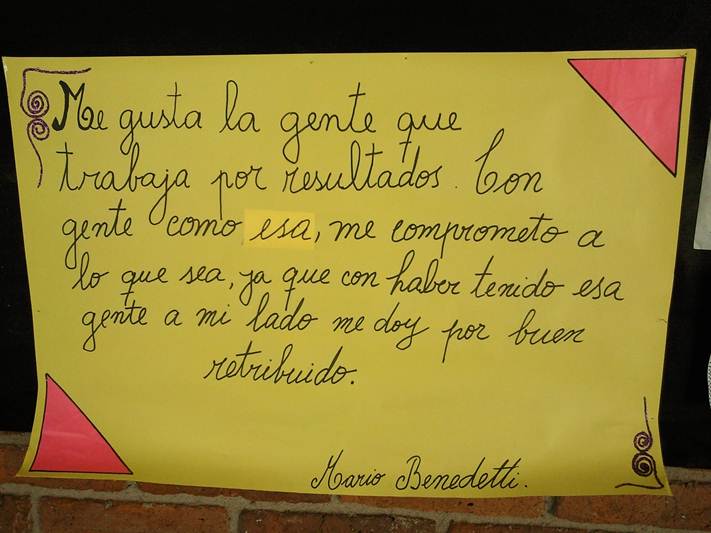 Me gusta la gente que
trabaja por resultados. Con
gente como esa, me comprometo a
lo que sea, ya que con haber tenido esa
gente a mi lado me doy por buen
retribuido.
Mario Benedetti.